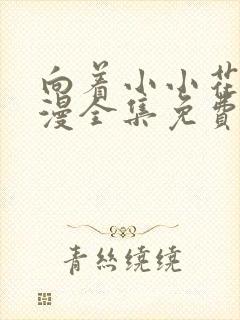 向着小小花
漫全集免费
青丝绕绕